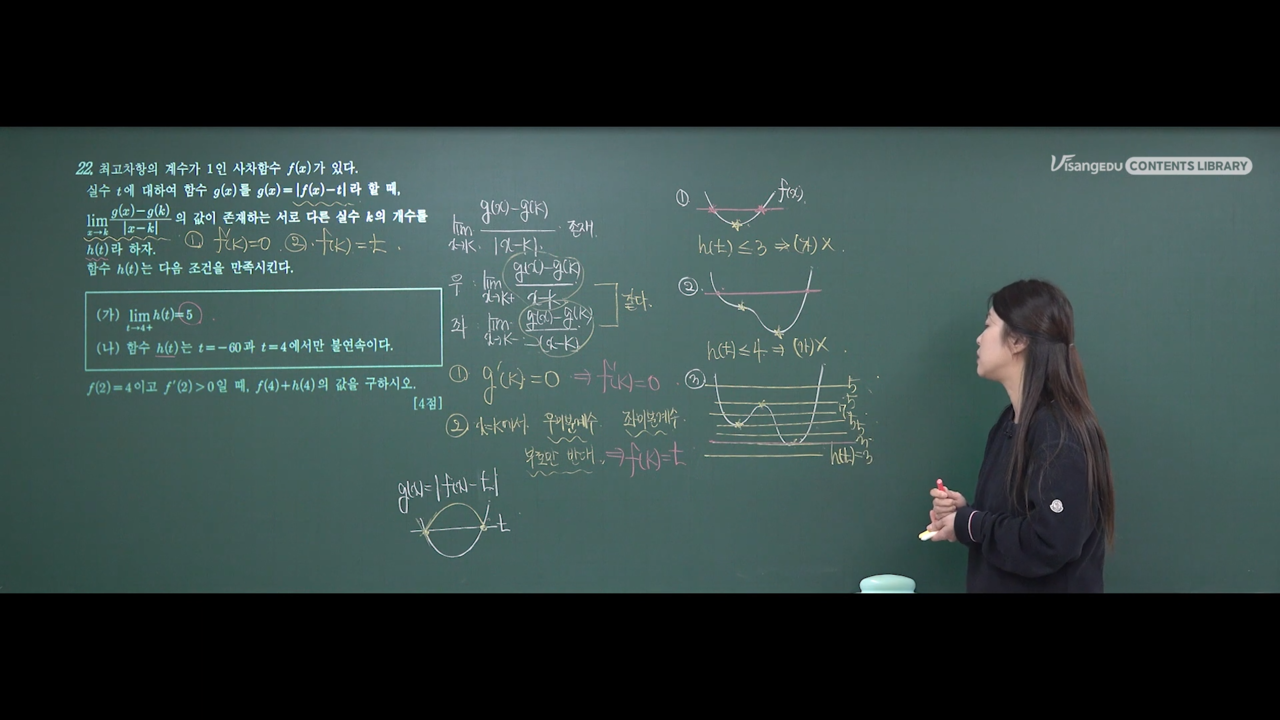 VISANGEDU CONTENTS LIBRARY
22. 최고차항의 계수가 1인 사차함수 f(x)가 있다.
실수 t에 대하여 함수 g(x)를 g(x)=|f(x)-t|라 할 때,
lim x→k g(x)-g(k) / |x-k| 의 값이 존재하는 서로 다른 실수 k의 개수를
h(t)라 하자.
① f'(k)=0 ② f(k)=t.
함수 h(t)는 다음 조건을 만족시킨다.
(가) lim t→4+ h(t)=5
(나) 함수 h(t)는 t=-60과 t=4에서만 불연속이다.
f(2)=4이고 f'(2)>0일 때, f(4)+h(4)의 값을 구하시오.
[4점]
lim x→k g(x)-g(k) / |x-k| 존재.
우: lim x→k+ g(x)-g(k) / x-k
좌: lim x→k- g(x)-g(k) / -(x-k)
같다.
① g'(k)=0 ⇒ f'(k)=0
② x=k에서 우미분계수 좌미분계수
부호만 반대 ⇒ f(k)=t
g(x)=|f(x)-t|
t
① f(x)
h(t)≤3 ⇒ (가)X.
②
h(t)≤4 ⇒ (가)X.
③
5
5
7
5
3
h(t)=3